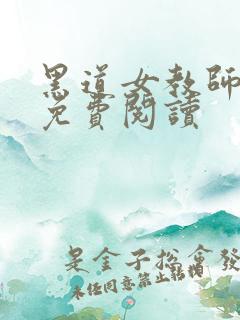 黑道女教師
免費閱讀
是金子總會發
未經同意禁止轉載